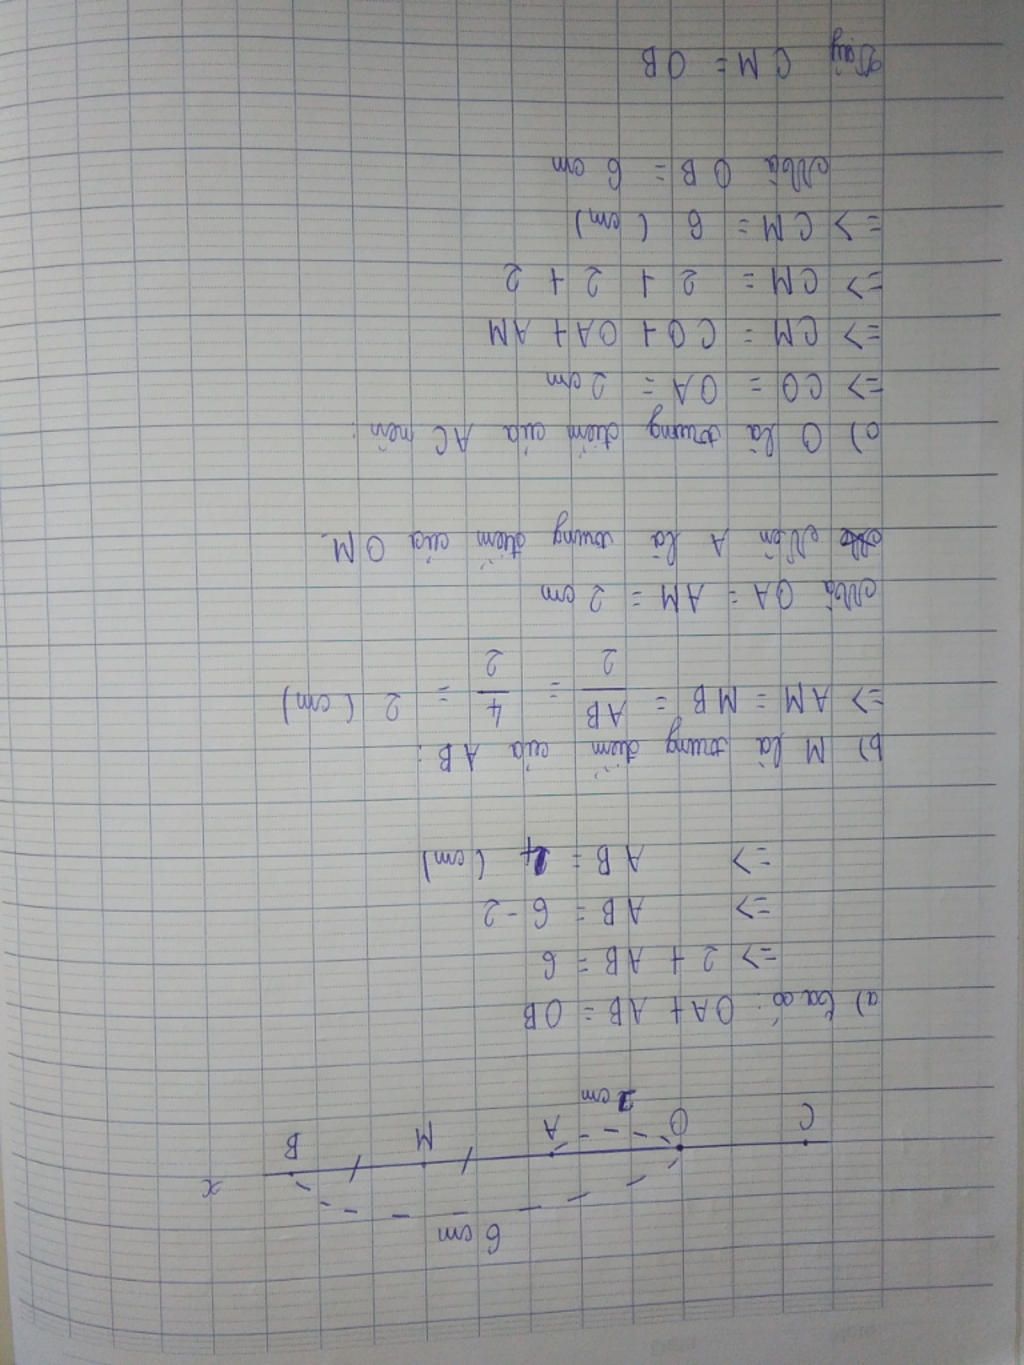 6 cm
C O A M B x
2 cm
a) Ta có: OA + AB = OB
=> 2 + AB = 6
=> AB = 6 - 2
=> AB = 4 (cm)
b) M là trung điểm của AB:
=> AM = MB = AB/2 = 4/2 = 2 (cm)
Mà OA = AM = 2 cm
Nên A là trung điểm của OM.
c) O là trung điểm của AC nên:
=> CO = OA = 2 cm
=> CM = CO + OA + AM
=> CM = 2 + 2 + 2
=> CM = 6 (cm)
Mà OB = 6 cm
Vậy CM = OB